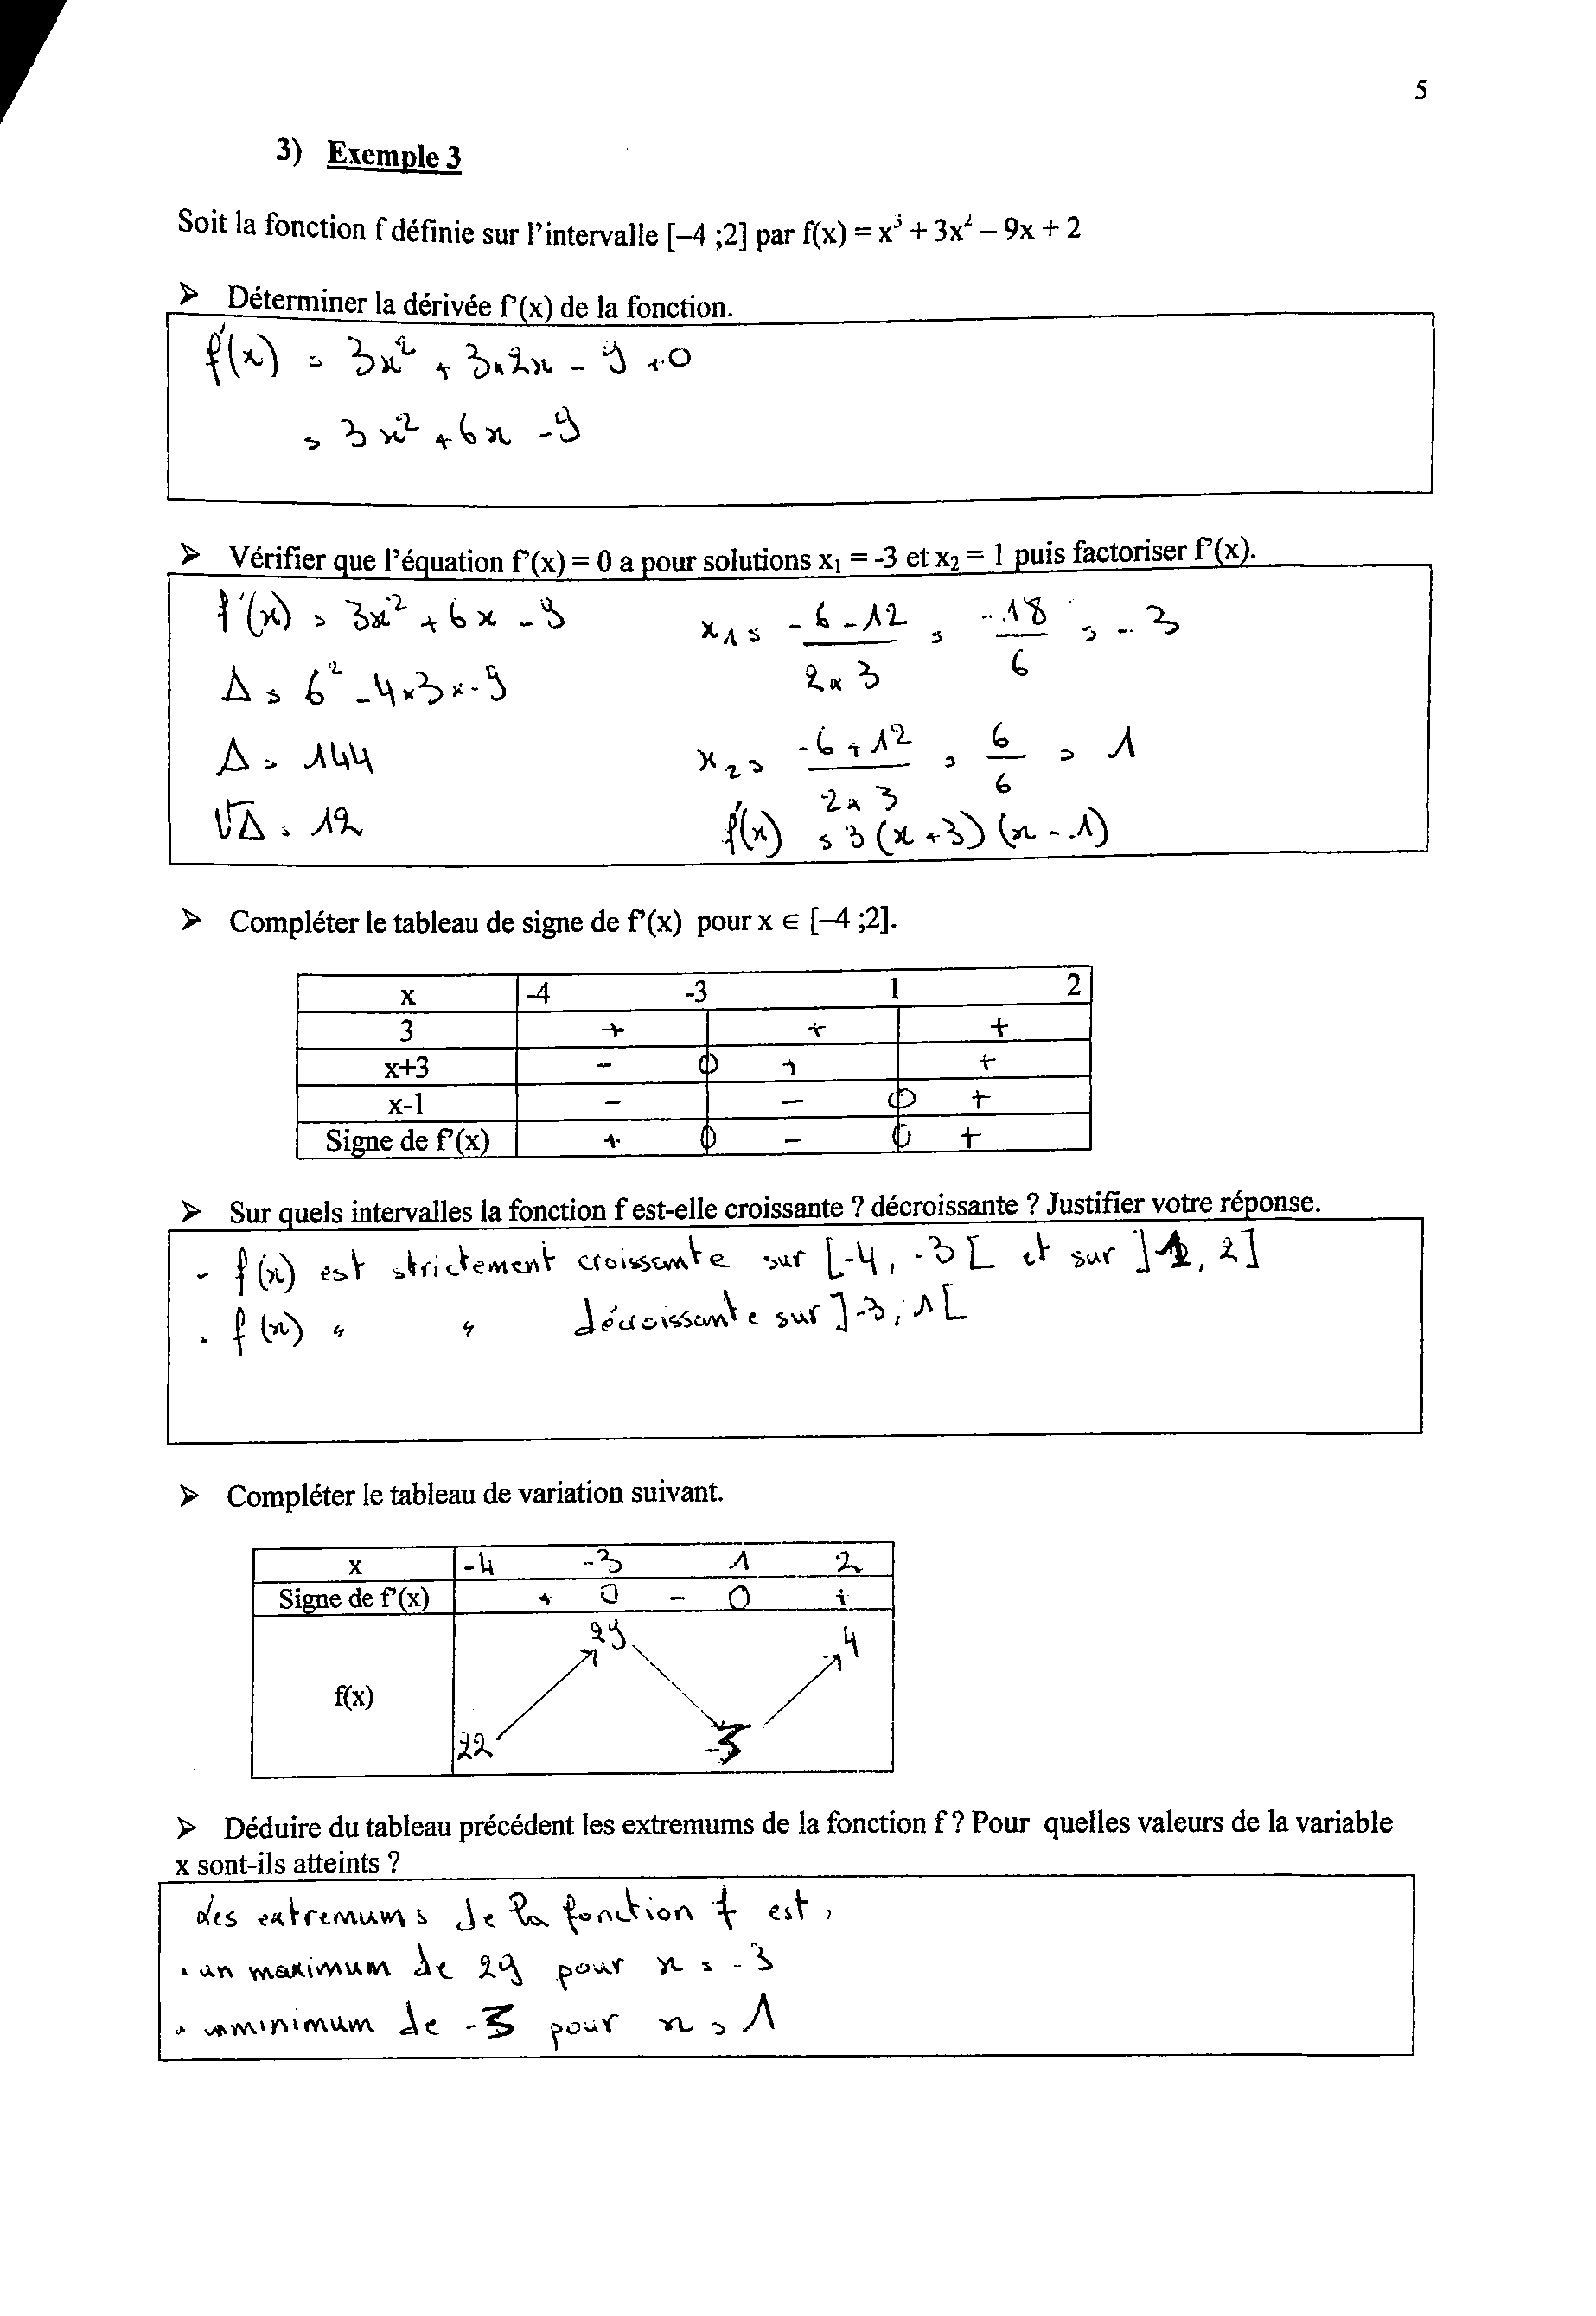 5
3) Exemple 3
Soit la fonction f définie sur l'intervalle [–4 ;2] par f(x) = x³ + 3x² – 9x + 2
➢ Déterminer la dérivée f'(x) de la fonction.
f'(x) = 3x² + 3×2x - 9 + 0
= 3x² + 6x - 9
➢ Vérifier que l'équation f'(x) = 0 a pour solutions x₁ = -3 et x₂ = 1 puis factoriser f'(x).
f'(x) = 3x² + 6x - 9
Δ = 6² - 4×3×-9
Δ = 144
√Δ = 12
x₁ = (-6-12)/(2×3) = -18/6 = -3
x₂ = (-6+12)/(2×3) = 6/6 = 1
f'(x) = 3(x+3)(x-1)
➢ Compléter le tableau de signe de f'(x) pour x ∈ [–4 ;2].
x -4 -3 1 2
3 + + +
x+3 - 0 + +
x-1 - - 0 +
Signe de f'(x) + 0 - 0 +
➢ Sur quels intervalles la fonction f est-elle croissante ? décroissante ? Justifier votre réponse.
- f(x) est strictement croissante sur [-4, -3[ et sur ]1, 2]
. f(x) " " décroissante sur ]-3; 1[
➢ Compléter le tableau de variation suivant.
x -4 -3 1 2
Signe de f'(x) + 0 - 0 +
29 4
f(x)
22 -3
➢ Déduire du tableau précédent les extremums de la fonction f ? Pour quelles valeurs de la variable
x sont-ils atteints ?
Les extremums de la fonction f est,
. un maximum de 29 pour x = -3
. un minimum de -3 pour x = 1